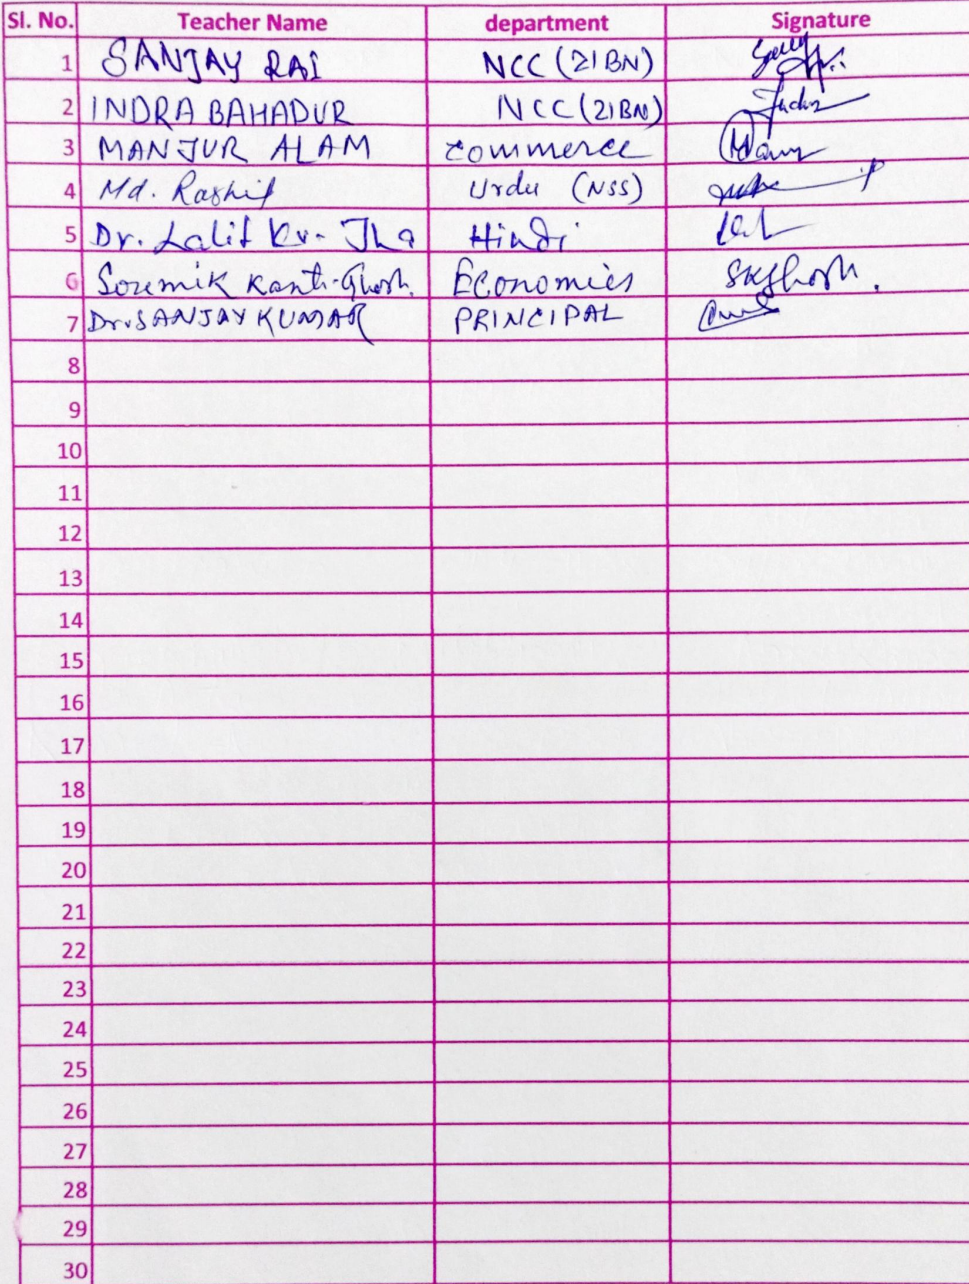 Sl. No. Teacher Name department Signature
1 SANJAY RAI NCC (21 BN)
2 INDRA BAHADUR NCC (21 BN)
3 MANJUR ALAM commerce
4 Md. Urdu (NSS)
5 Dr. Lalit Kr. Jha Hindi
6 Soumik Kanti Ghosh. Economics SKGhosh.
7 Dr. SANJAY KUMAR PRINCIPAL
8
9
10
11
12
13
14
15
16
17
18
19
20
21
22
23
24
25
26
27
28
29
30